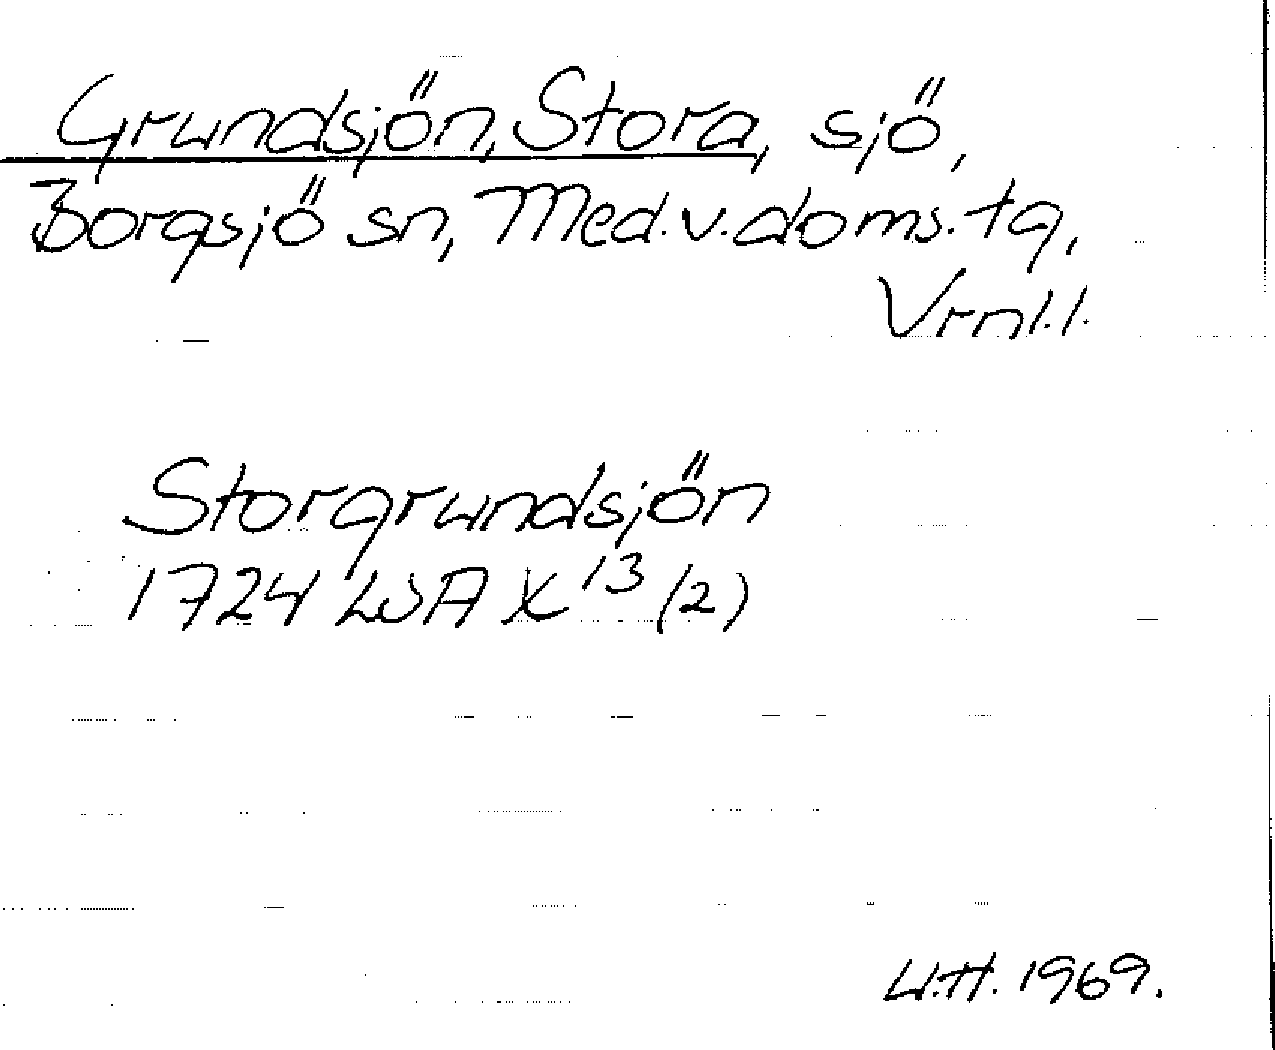 Grundsjön, Stora, sjö,
Borgsjö sn, Med.v.doms.tg,
Vrnl.l.
Storgrundsjön
1724 LSA X¹³ (2)
U.H. 1969.